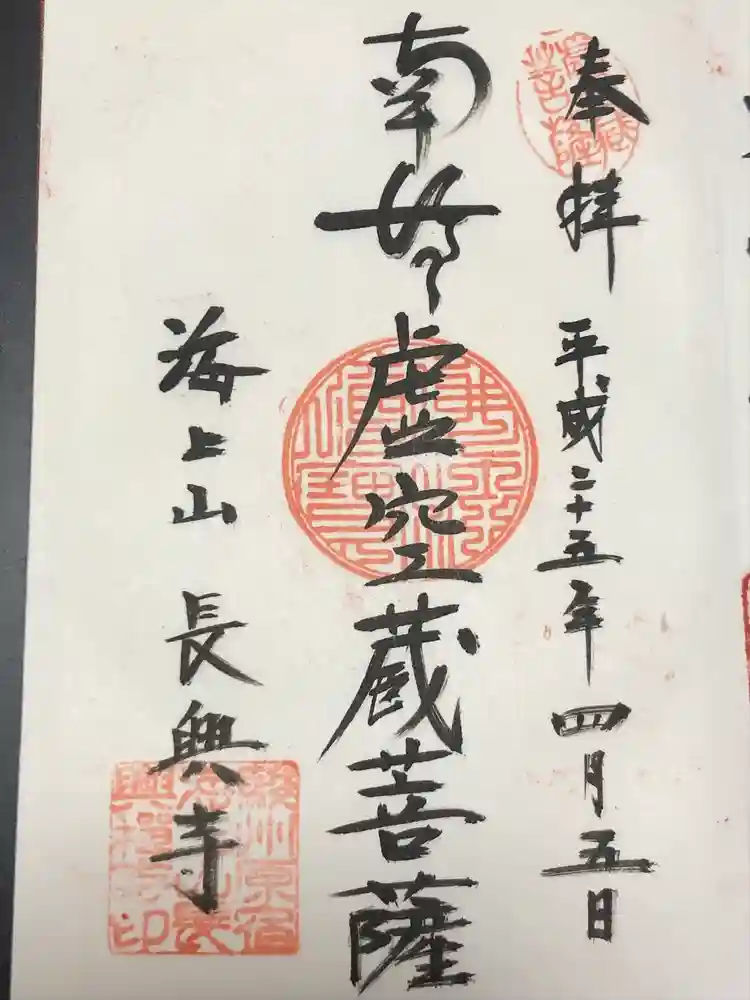 奉拝
平成二十五年四月五日
南無虚空蔵菩薩
海上山 長興寺